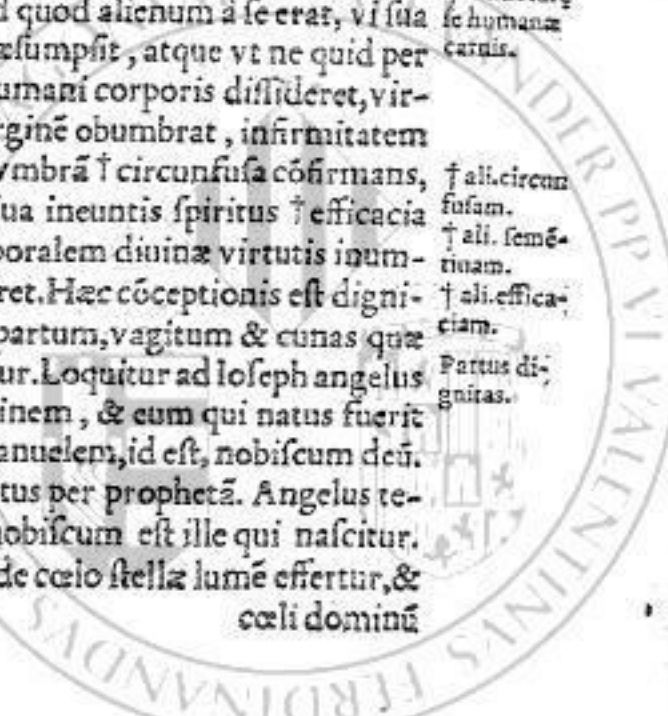 d quod alienum à se erat, vi sua
æsumpsit, atque vt ne quid per
umani corporis dissideret, vir-
rginē obumbrat, infirmitatem
vmbrā † circunfusa cōfirmans,
ua ineuntis spiritus † efficacia
poralem diuinæ virtutis inum-
ret. Hæc cōceptionis est digni-
partum, vagitum & cunas quæ
ur. Loquitur ad Ioseph angelus
inem, & eum qui natus fuerit
anuelem, id est, nobiscum deū.
tus per prophetā. Angelus te-
nobiscum est ille qui nascitur.
de cœlo stellæ lumē effertur, &
cœli dominū
se humanæ
carnis.
† ali. circun
fusam.
† ali. semē-
tinam.
† ali. effica-
ciam.
Partus di-
gnitas.
VALENTINVS FERDINANDVS